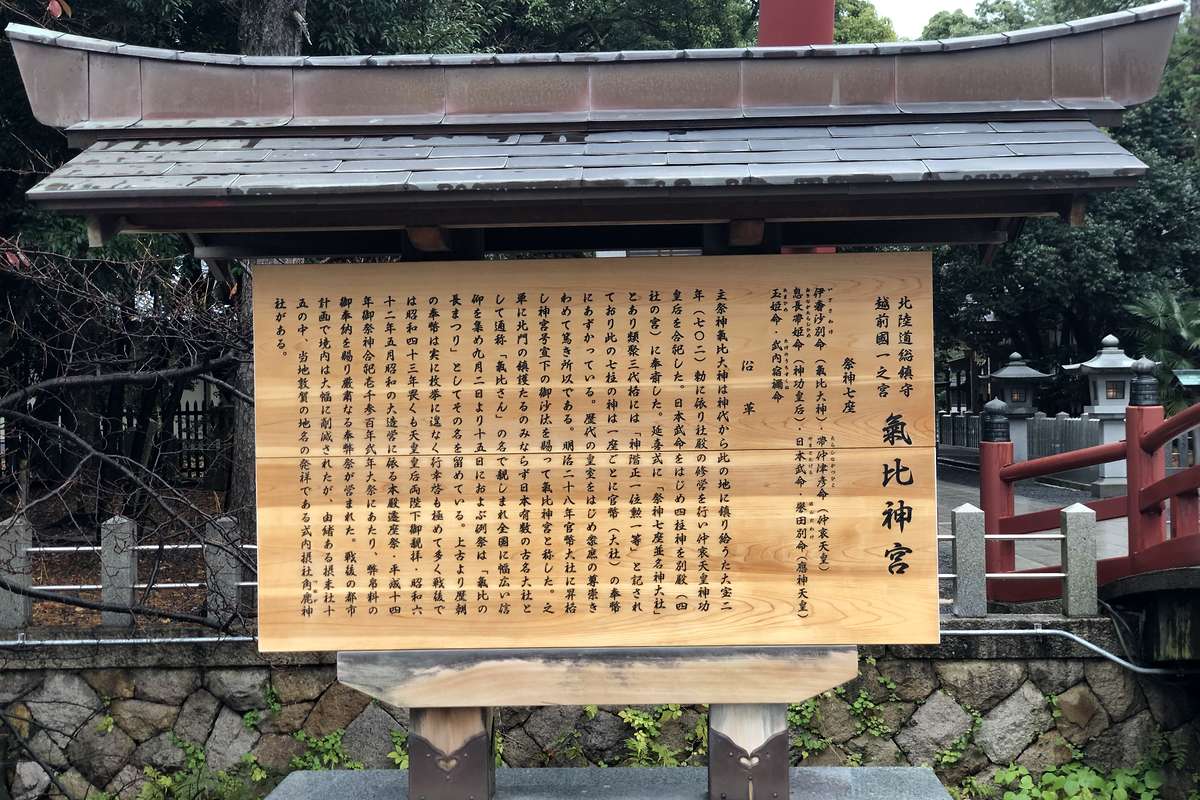 北陸道総鎮守
越前國一之宮
氣比神宮
祭神七座
伊奢沙別命（氣比大神）・帯仲津彦命（仲哀天皇）
息長帯姫命（神功皇后）・日本武命・譽田別命（應神天皇）
玉姫命・武内宿禰命
沿革
主祭神氣比大神は神代から此の地に鎮り給うた大宝二
年（七〇二）勅に依り社殿の修営を行い仲哀天皇神功
皇后を合祀した。日本武命をはじめ四柱神を別殿（四
社の宮）に奉斎した。延喜式に「祭神七座並名神大社」
とあり類聚三代格には「神階正一位勲一等」と記され
ており此の七柱の神は一座ごとに官幣（大社）の奉幣
にあずかっている。歴代の皇室をはじめ衆庶の尊崇き
わめて篤き所以である。明治二十八年官幣大社に昇格
し神宮号宣下の御沙汰を賜って氣比神宮と称した。之
単に北門の鎮護たるのみならず日本有数の古名大社と
して通称「氣比さん」の名で親しまれ全国に幅広い信
仰を集め九月二日より十五日におよぶ例祭は「氣比の
長まつり」としてその名を留めている。上古より歴朝
の奉幣は実に枚挙に遑なく行幸啓も極めて多く戦後で
は昭和四十三年畏くも天皇皇后両陛下御親拝・昭和六
十二年五月昭和の大造営に依る本殿遷座祭・平成十四
年御祭神合祀壱千参百年式年大祭にあたり、幣帛料の
御奉納を賜り厳粛なる奉幣祭が営まれた。戦後の都市
計画で境内は大幅に削減されたが、由緒ある摂末社十
五の中、当地敦賀の地名の発祥である式内摂社角鹿神
社がある。